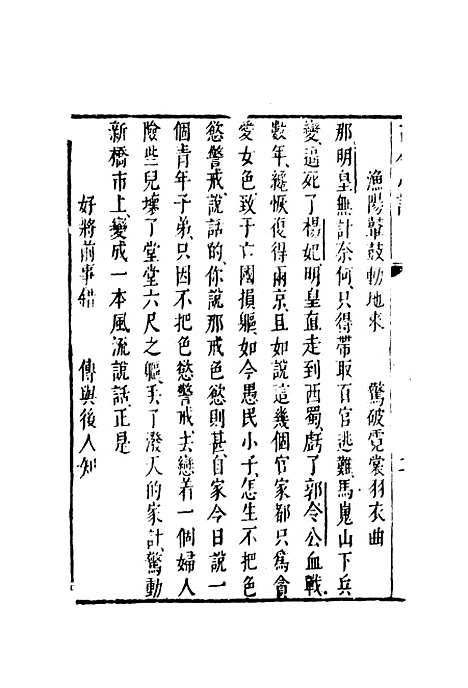 漁陽鼙鼓動地來　驚破霓裳羽衣曲
那明皇無計奈何只得帶取百官逃難馬嵬山下兵
變逼死了楊妃明皇直走到西蜀虧了郭令公血戰
數年纔恢復得兩京且如說這幾個官家都只爲貪
愛女色致于亡國損軀如今愚民小子怎生不把色
慾警戒說話的你說那戒色慾則甚自家今日說一
個青年子弟只因不把色慾警戒去戀着一個婦人
險些兒壞了堂堂六尺之軀丟了潑天的家計驚動
新橋市上變成一本風流說話正是
好將前事錯　傳與後人知